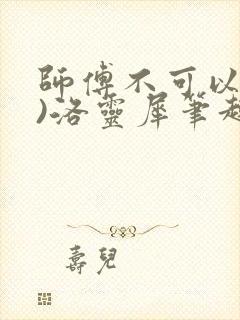 師傅不可以
)洛靈犀筆趣
壽兒